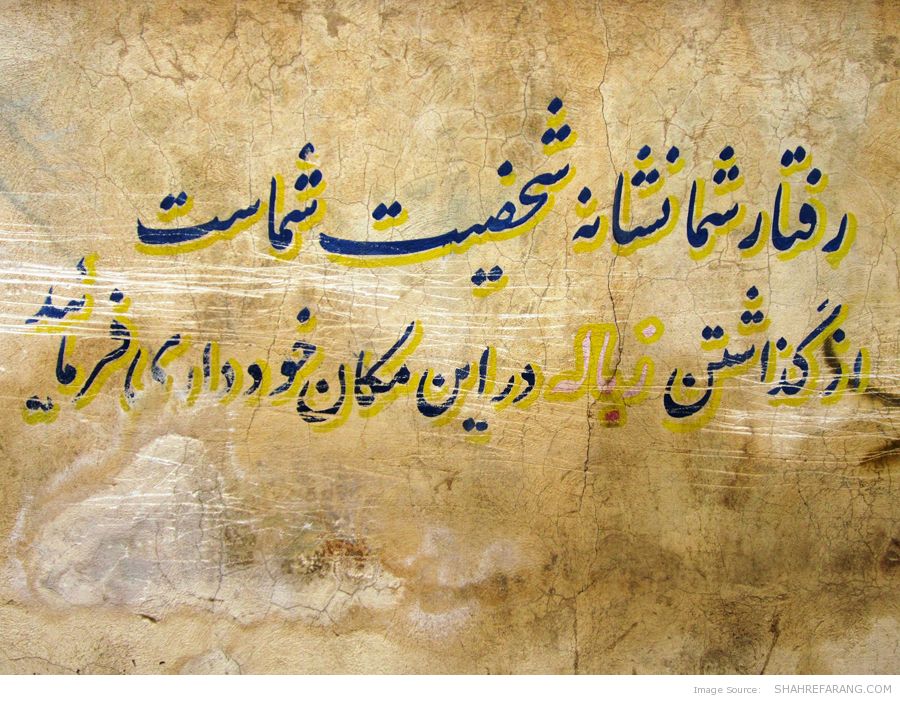 رفتار شما نشانه شخصیت شماست
از گذاشتن زباله در این مکان خودداری فرمائید
Image Source: SHAHREFARANG.COM